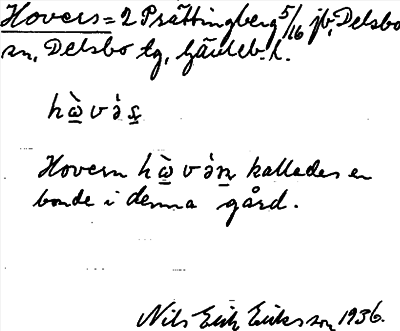 Hovers = 2 Prästtingberg 5/16 jb, Delsbo
sn, Delsbo tg, Gävleb. l.
hὼvə̀s̠
Hovern hὼvə̀n̠ kallades en
bonde i denna gård.
Nils Erik Eriksson 1936.